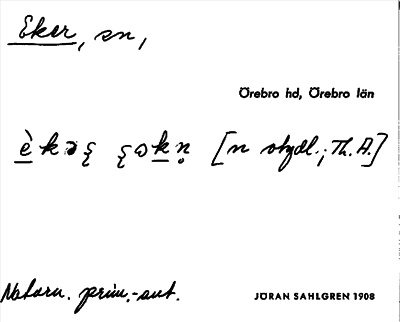 Eker, sn,
Örebro hd, Örebro län
[n otydl.; Th. A.]
Naturn. prim.-ant.
JÖRAN SAHLGREN 1908